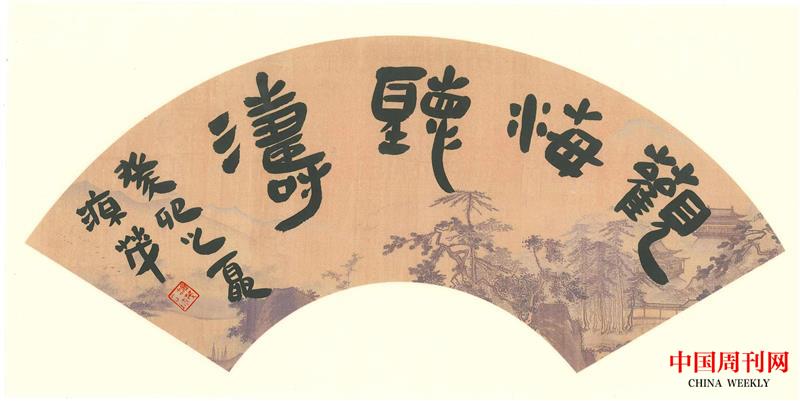 觀海聽濤
癸卯之夏
中国周刊网
CHINA WEEKLY